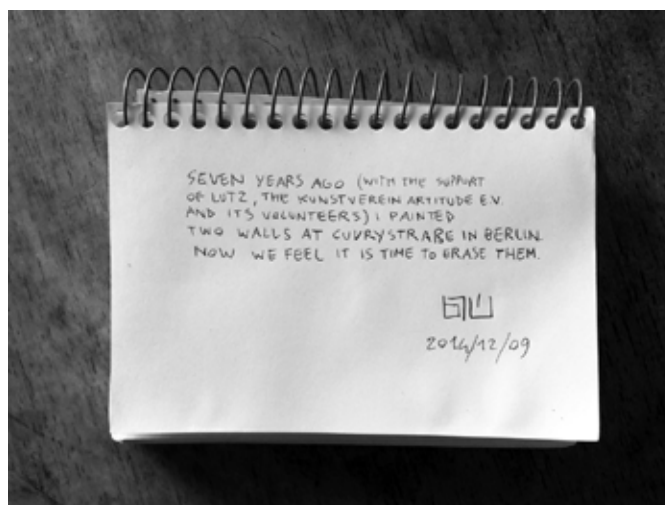 SEVEN YEARS AGO (WITH THE SUPPORT
OF LUTZ, THE KUNSTVEREIN ARTITUDE E.V.
AND ITS VOLUNTEERS) I PAINTED
TWO WALLS AT CUVRYSTRAßE IN BERLIN.
NOW WE FEEL IT IS TIME TO ERASE THEM.
BLU
2014/12/09